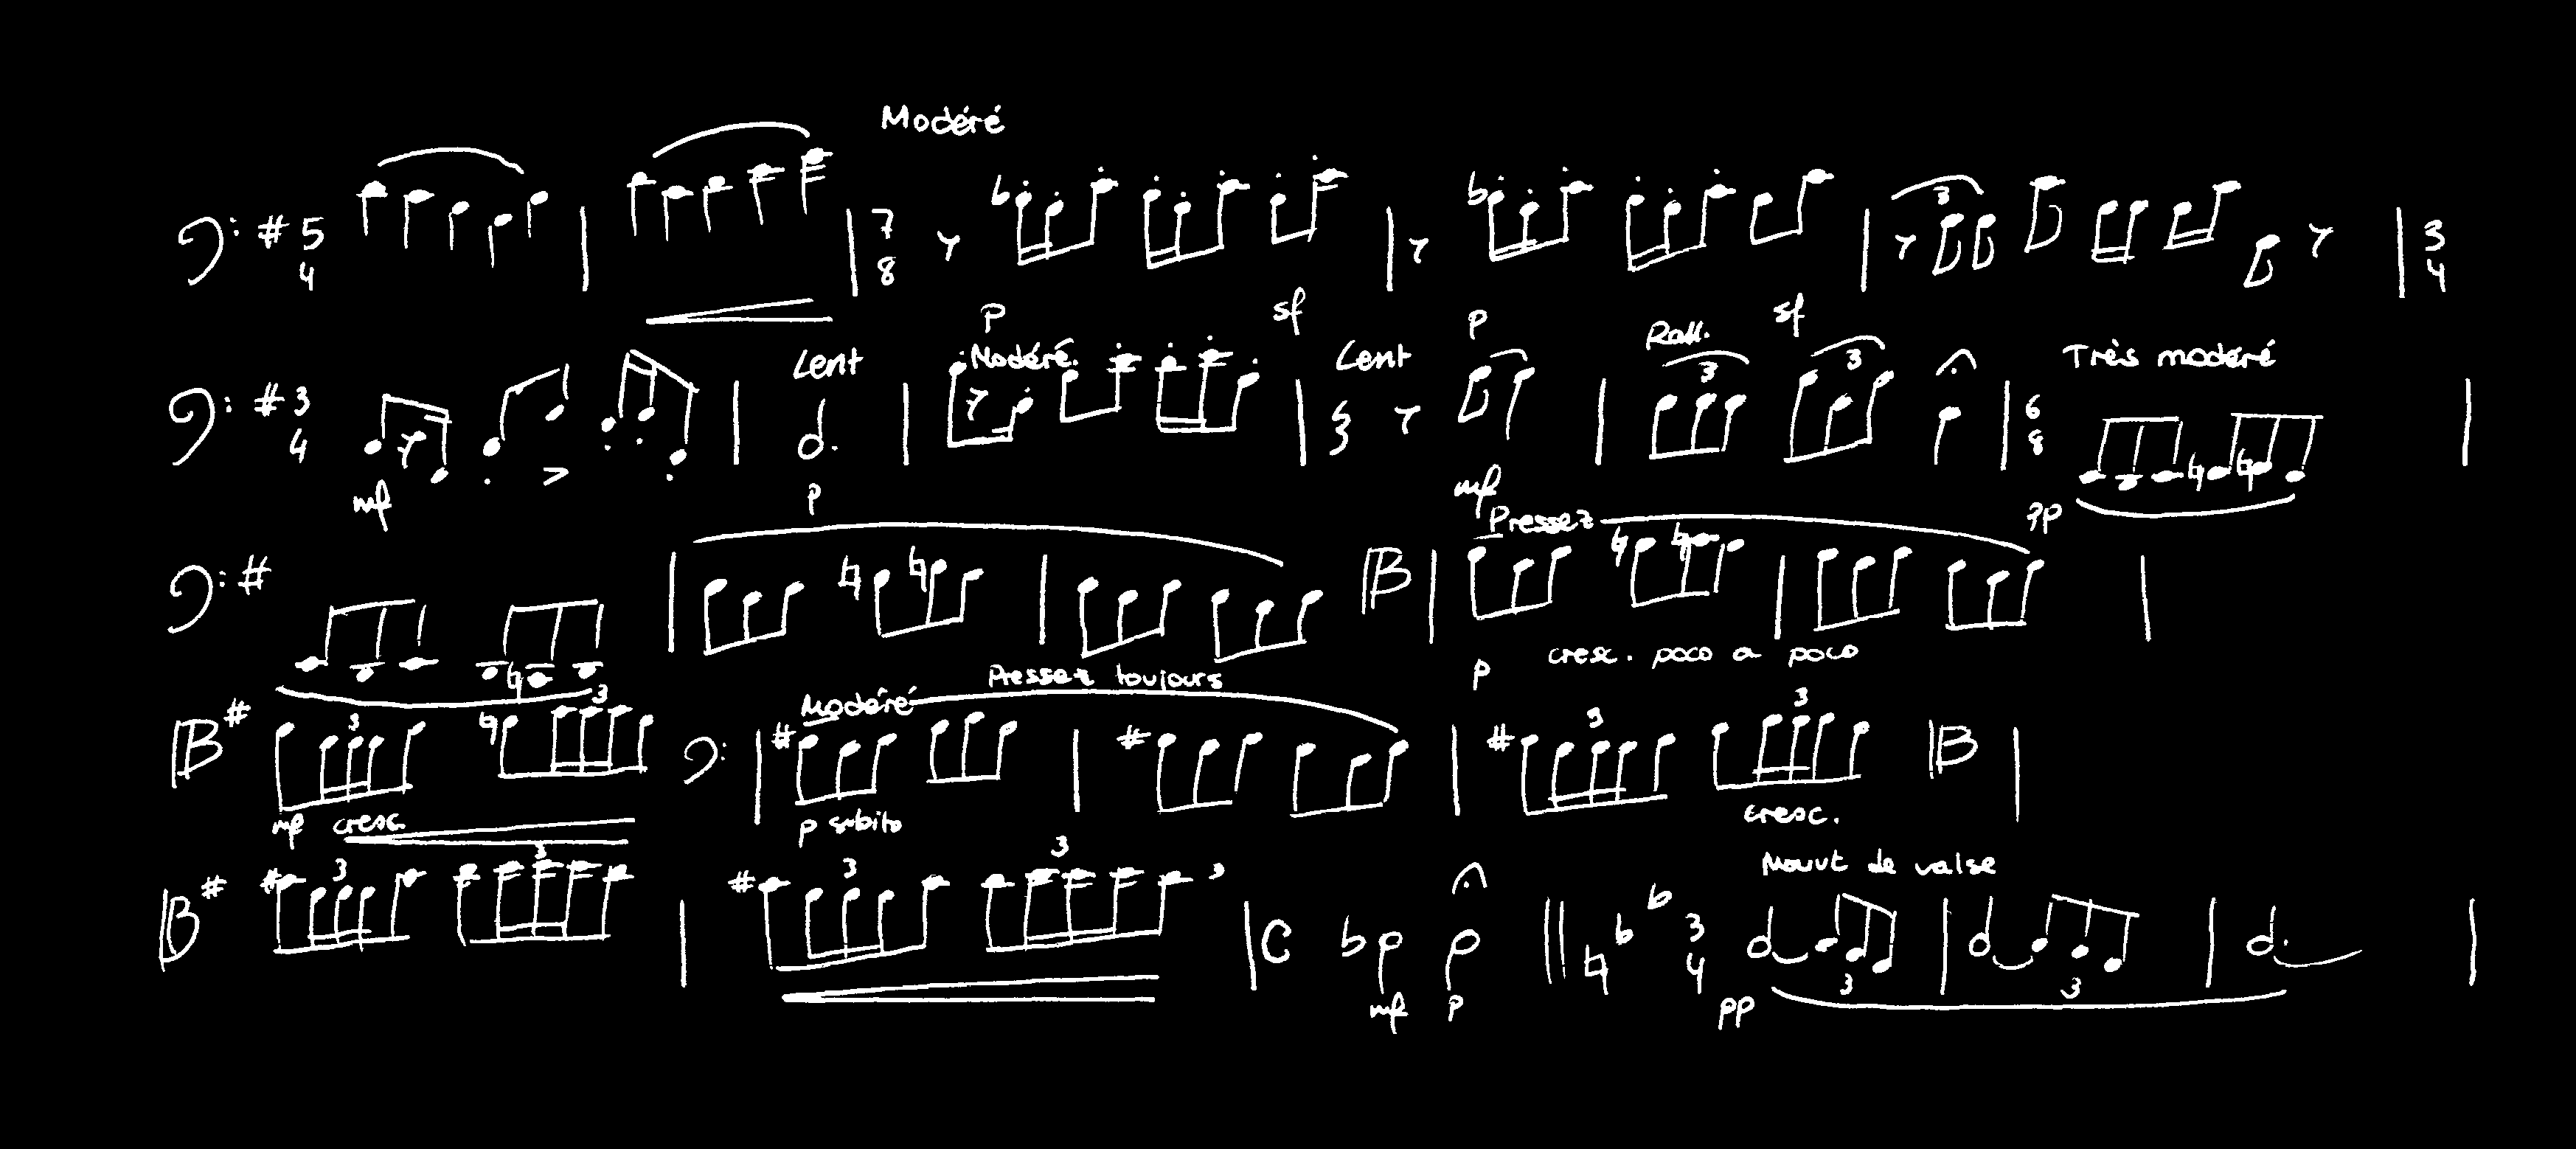 Modéré
5 4
7 8
3 4
p sf p sf
3
Lent Modéré. Lent Rall. Très modéré
3 4
3 3
6 8
mf p mf pp
Pressez
p cresc. poco a poco
Modéré Pressez toujours
3 3 3 3
mf cresc. p subito cresc.
Mouvt de valse
3 3 3 3 3
C
3 4
mf p pp 3 3